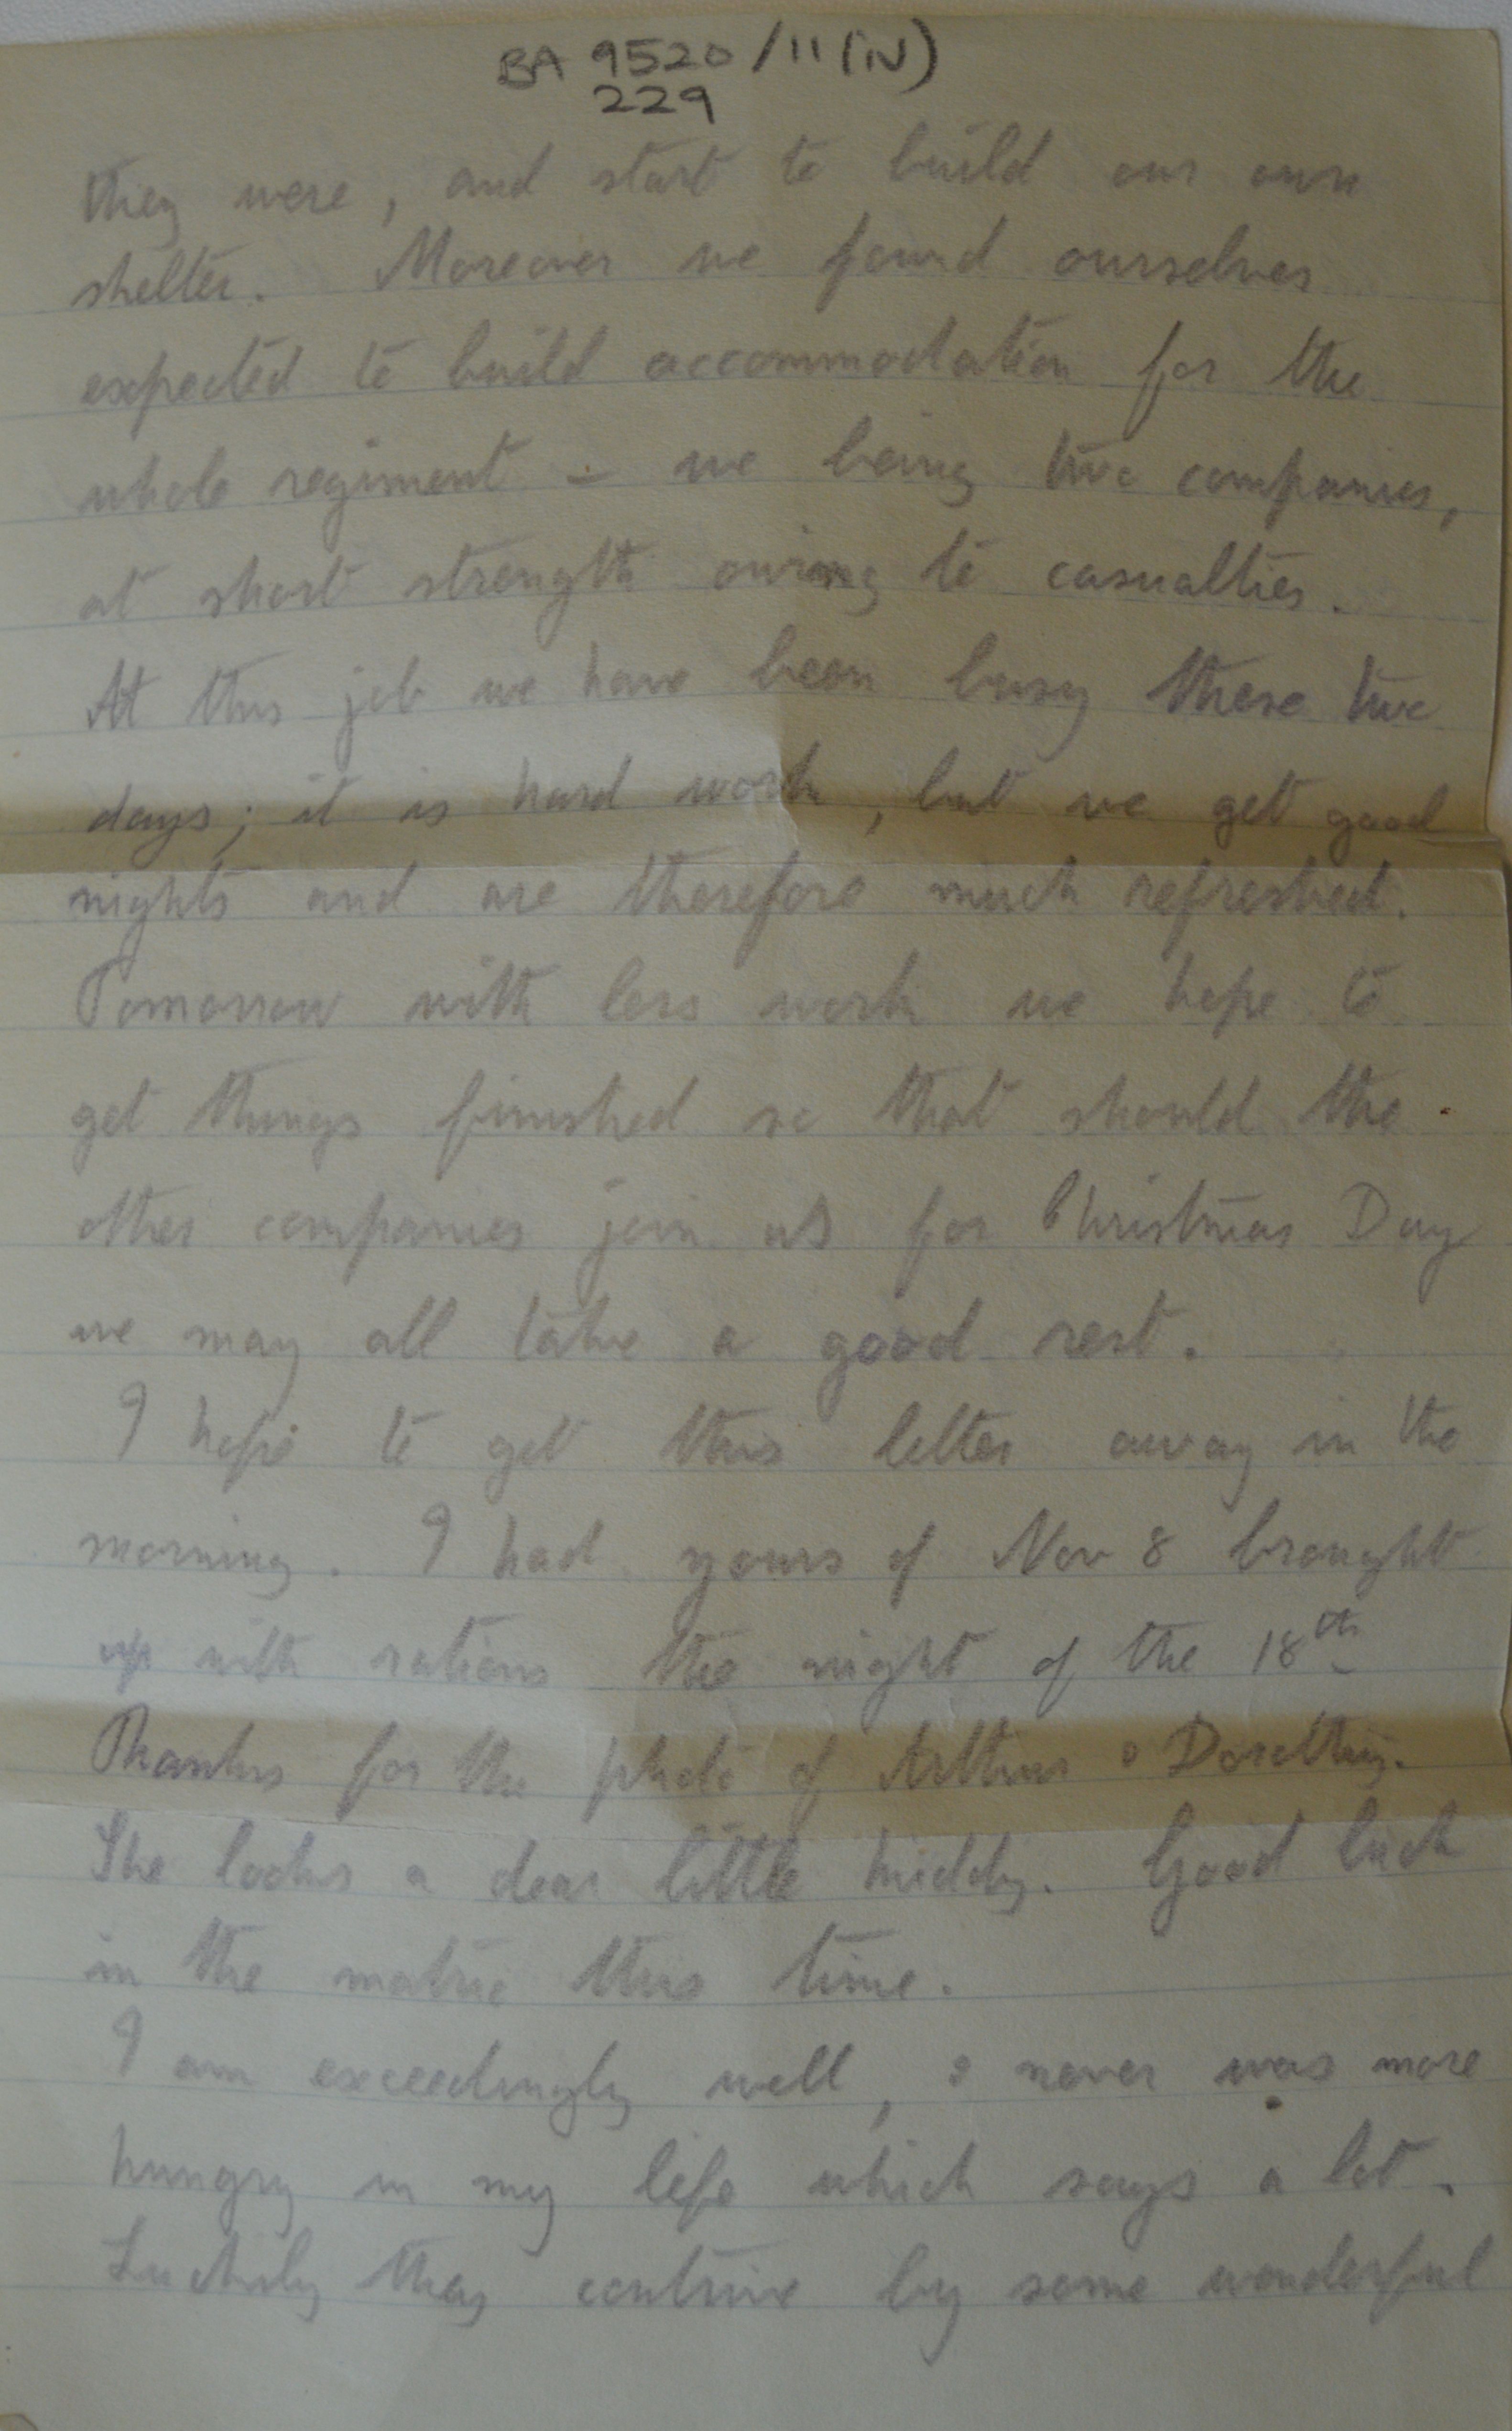 BA 9520/11(iv)
229
they were, and start to build our own
shelter. Moreover we found ourselves
expected to build accommodation for the
whole regiment – we being two companies,
at short strength owing to casualties.
At this job we have been busy these two
days; it is hard work, but we get good
nights and are therefore much refreshed.
Tomorrow with less work we hope to
get things finished so that should the
other companies join us for Christmas Day
we may all take a good rest.
I hope to get this letter away in the
morning. I had yours of Nov 8 brought
up with rations the night of the 18th
Thanks for the photo of Arthur & Dorothy.
She looks a dear little kiddy. Good luck
in the matric this time.
I am exceedingly well, & never was more
hungry in my life which says a lot.
Luckily they contrive by some wonderful